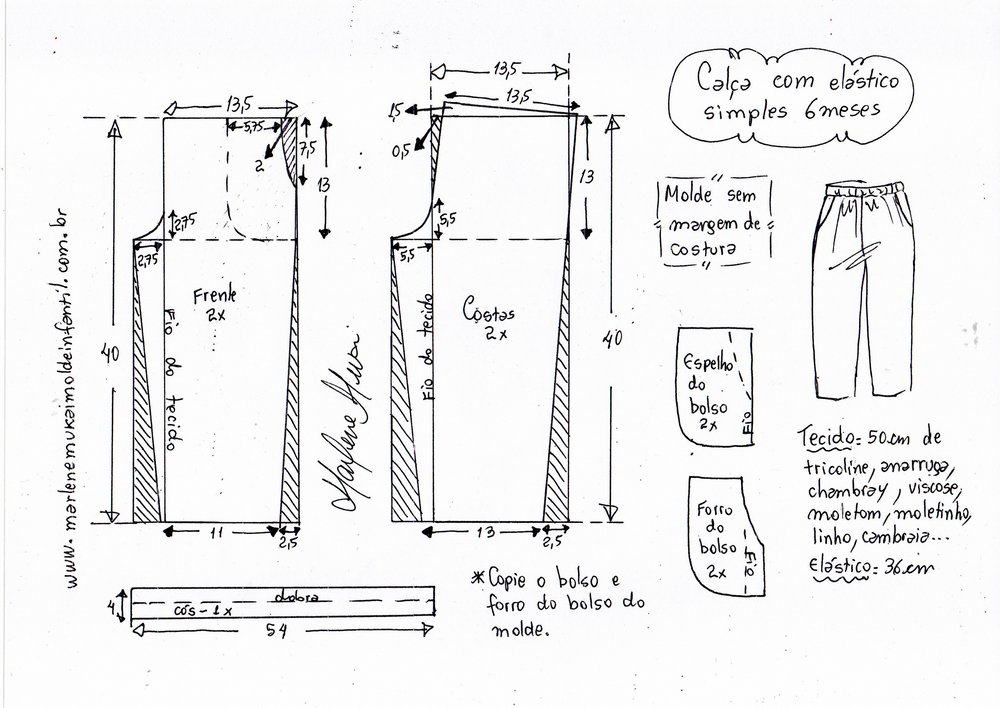 Calça com elástico
simples 6 meses
Molde sem
margem de
costura
www.marlenemukaimoldeinfantil.com.br
13,5
5,75
2
7,5
13
2,75
2,75
40
Frente
2x
Fio do tecido
11
2,5
13,5
13,5
1,5
0,5
13
5,5
5,5
40
Costas
2x
Fio do tecido
13
2,5
Espelho
do
bolso
2x
Fio
Forro
do
bolso
2x
Fio
Tecido: 50cm de
tricoline, anarruga,
chambray, viscose,
moletom, moletinho,
linho, cambraia...
Elástico: 36cm
4
dobra
cós - 1x
54
*Copie o bolso e
forro do bolso do
molde.